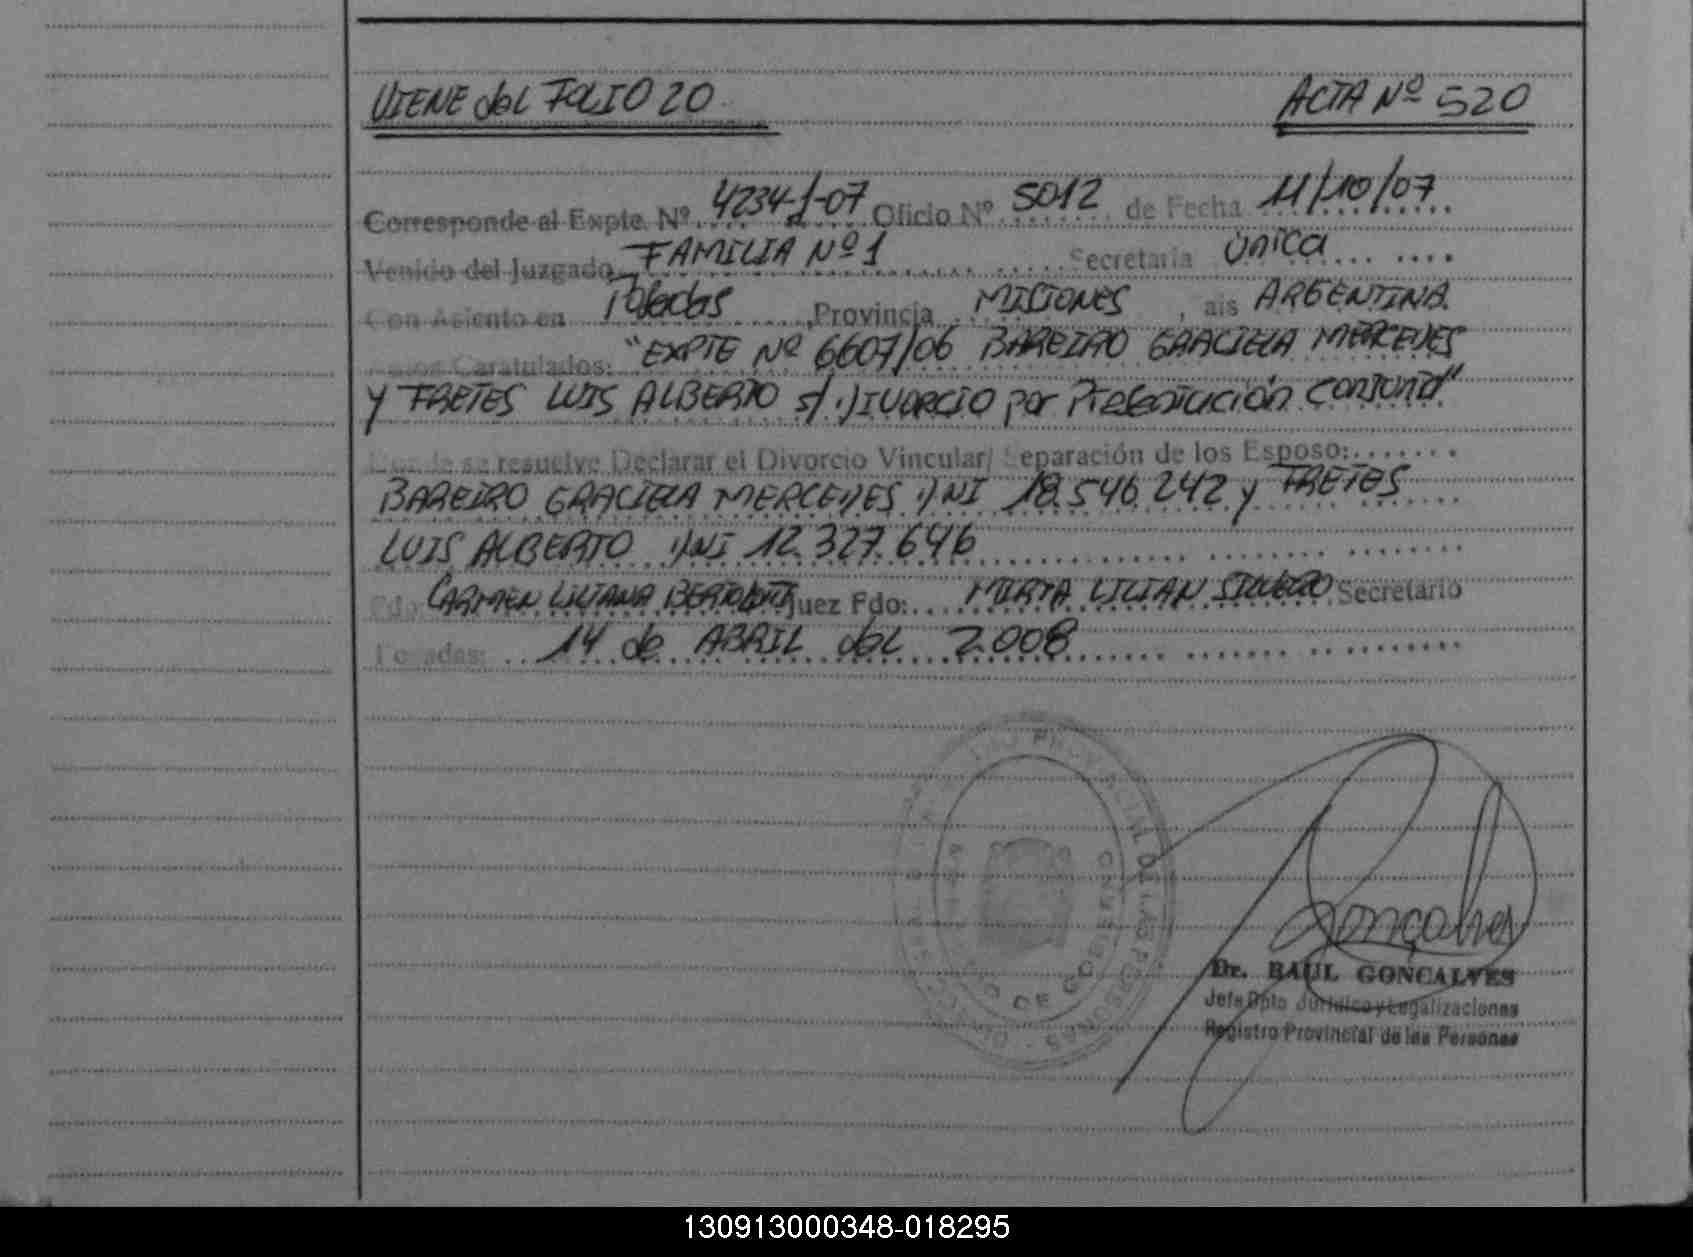 VIENE del FOLIO 20
ACTA Nº 520
Corresponde al Expte. Nº 4234-J-07 Oficio Nº 5012 de Fecha 11/10/07
Venido del Juzgado FAMILIA Nº 1 Secretaría Única
Con Asiento en Posadas, Provincia MISIONES, ais ARGENTINA.
Caratulados: "EXPTE Nº 6607/06 BAREIRO GRACIELA MERCEDES
y FRETES LUIS ALBERTO s/ DIVORCIO por Presentación Conjunta"
Donde se resuelve Declarar el Divorcio Vincular/ Separación de los Esposo:
BAREIRO GRACIELA MERCEDES DNI 18.546.242 y FRETES
LUIS ALBERTO DNI 12.327.646
Fdo: CARMEN LILIANA Juez Fdo: MIRTA LILIAN Secretario
Posadas: 14 de ABRIL del 2.008
Goncalves
Dr. RAUL GONCALVES
Jefe Dpto Jurídico y Legalizaciones
Registro Provincial de las Personas
PROVINCIAL DE LAS PERSONAS
DE GOBIERNO
130913000348-018295